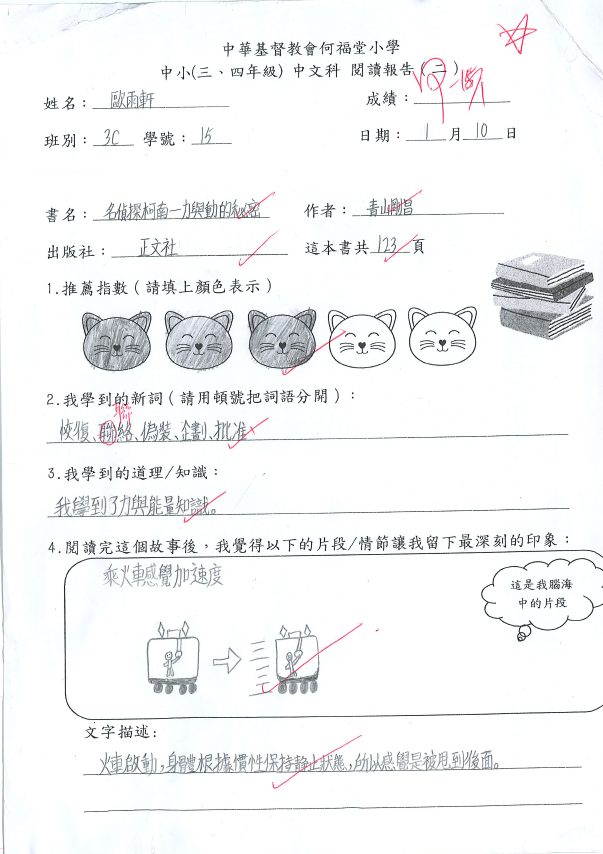 中華基督教會何福堂小學
中小(三、四年級) 中文科 閱讀報告(二)
姓名：歐雨軒 成績：
班別：3C 學號：15 日期：1月10日
書名：名偵探柯南—力與動的秘密 作者：青山剛昌
出版社：正文社 這本書共123頁
1.推薦指數(請填上顏色表示)
2.我學到的新詞(請用頓號把詞語分開)：
聯
恢復、聯絡、偽裝、企劃、批准
3.我學到的道理/知識：
我學到了力與能量知識。
4.閱讀完這個故事後，我覺得以下的片段/情節讓我留下最深刻的印象：
乘火車感覺加速度
這是我腦海
中的片段
文字描述:
火車啟動，身體根據慣性保持靜止狀態，所以感覺是被甩到後面。